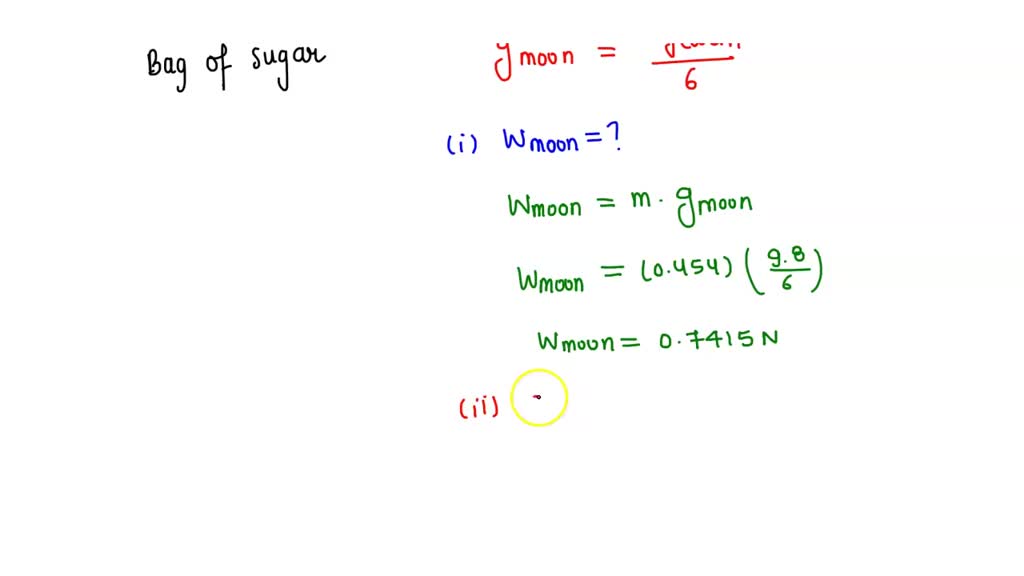 Bag of sugar
g moon = / 6
(i) Wmoon = ?
Wmoon = m . gmoon
Wmoon = (0.454) (9.8/6)
Wmoon = 0.7415 N
(ii)